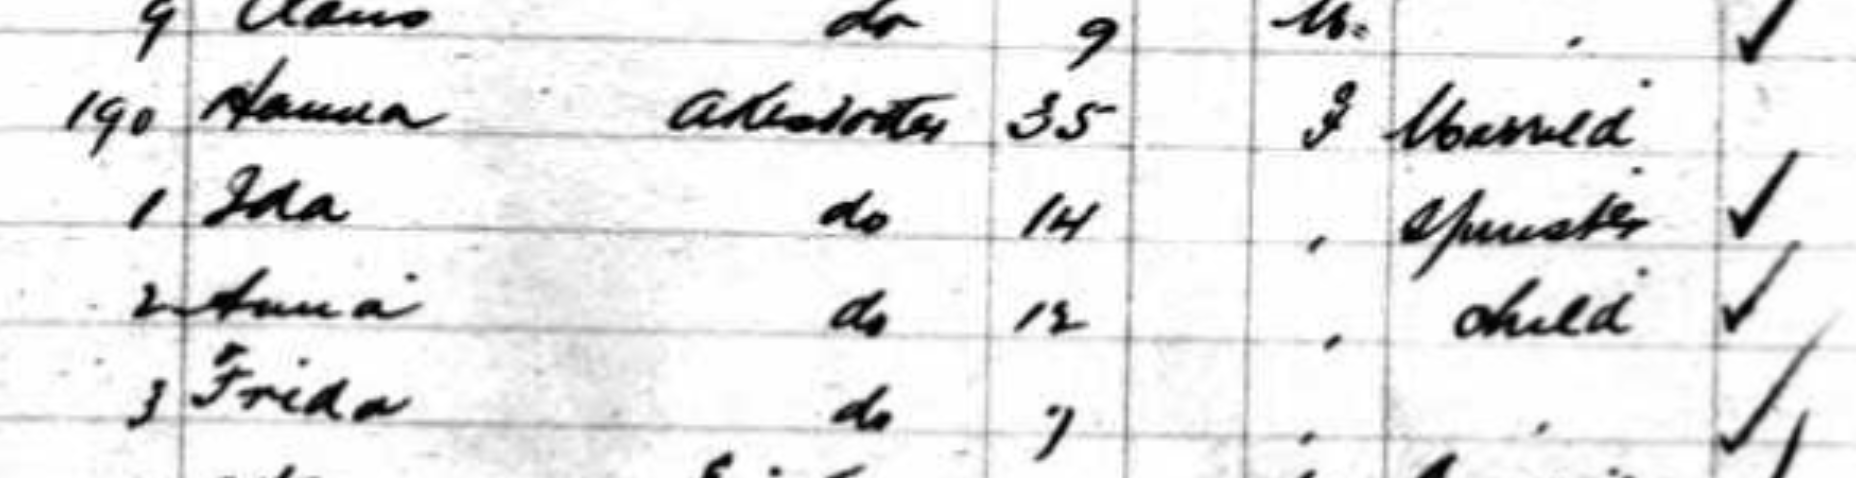 9 Claus do 9 M. " ✓
190 Hanna 35 F Married
1 Ida do 14 " Spinster ✓
2 Anna do 12 " child ✓
3 Frida do 7 " " ✓